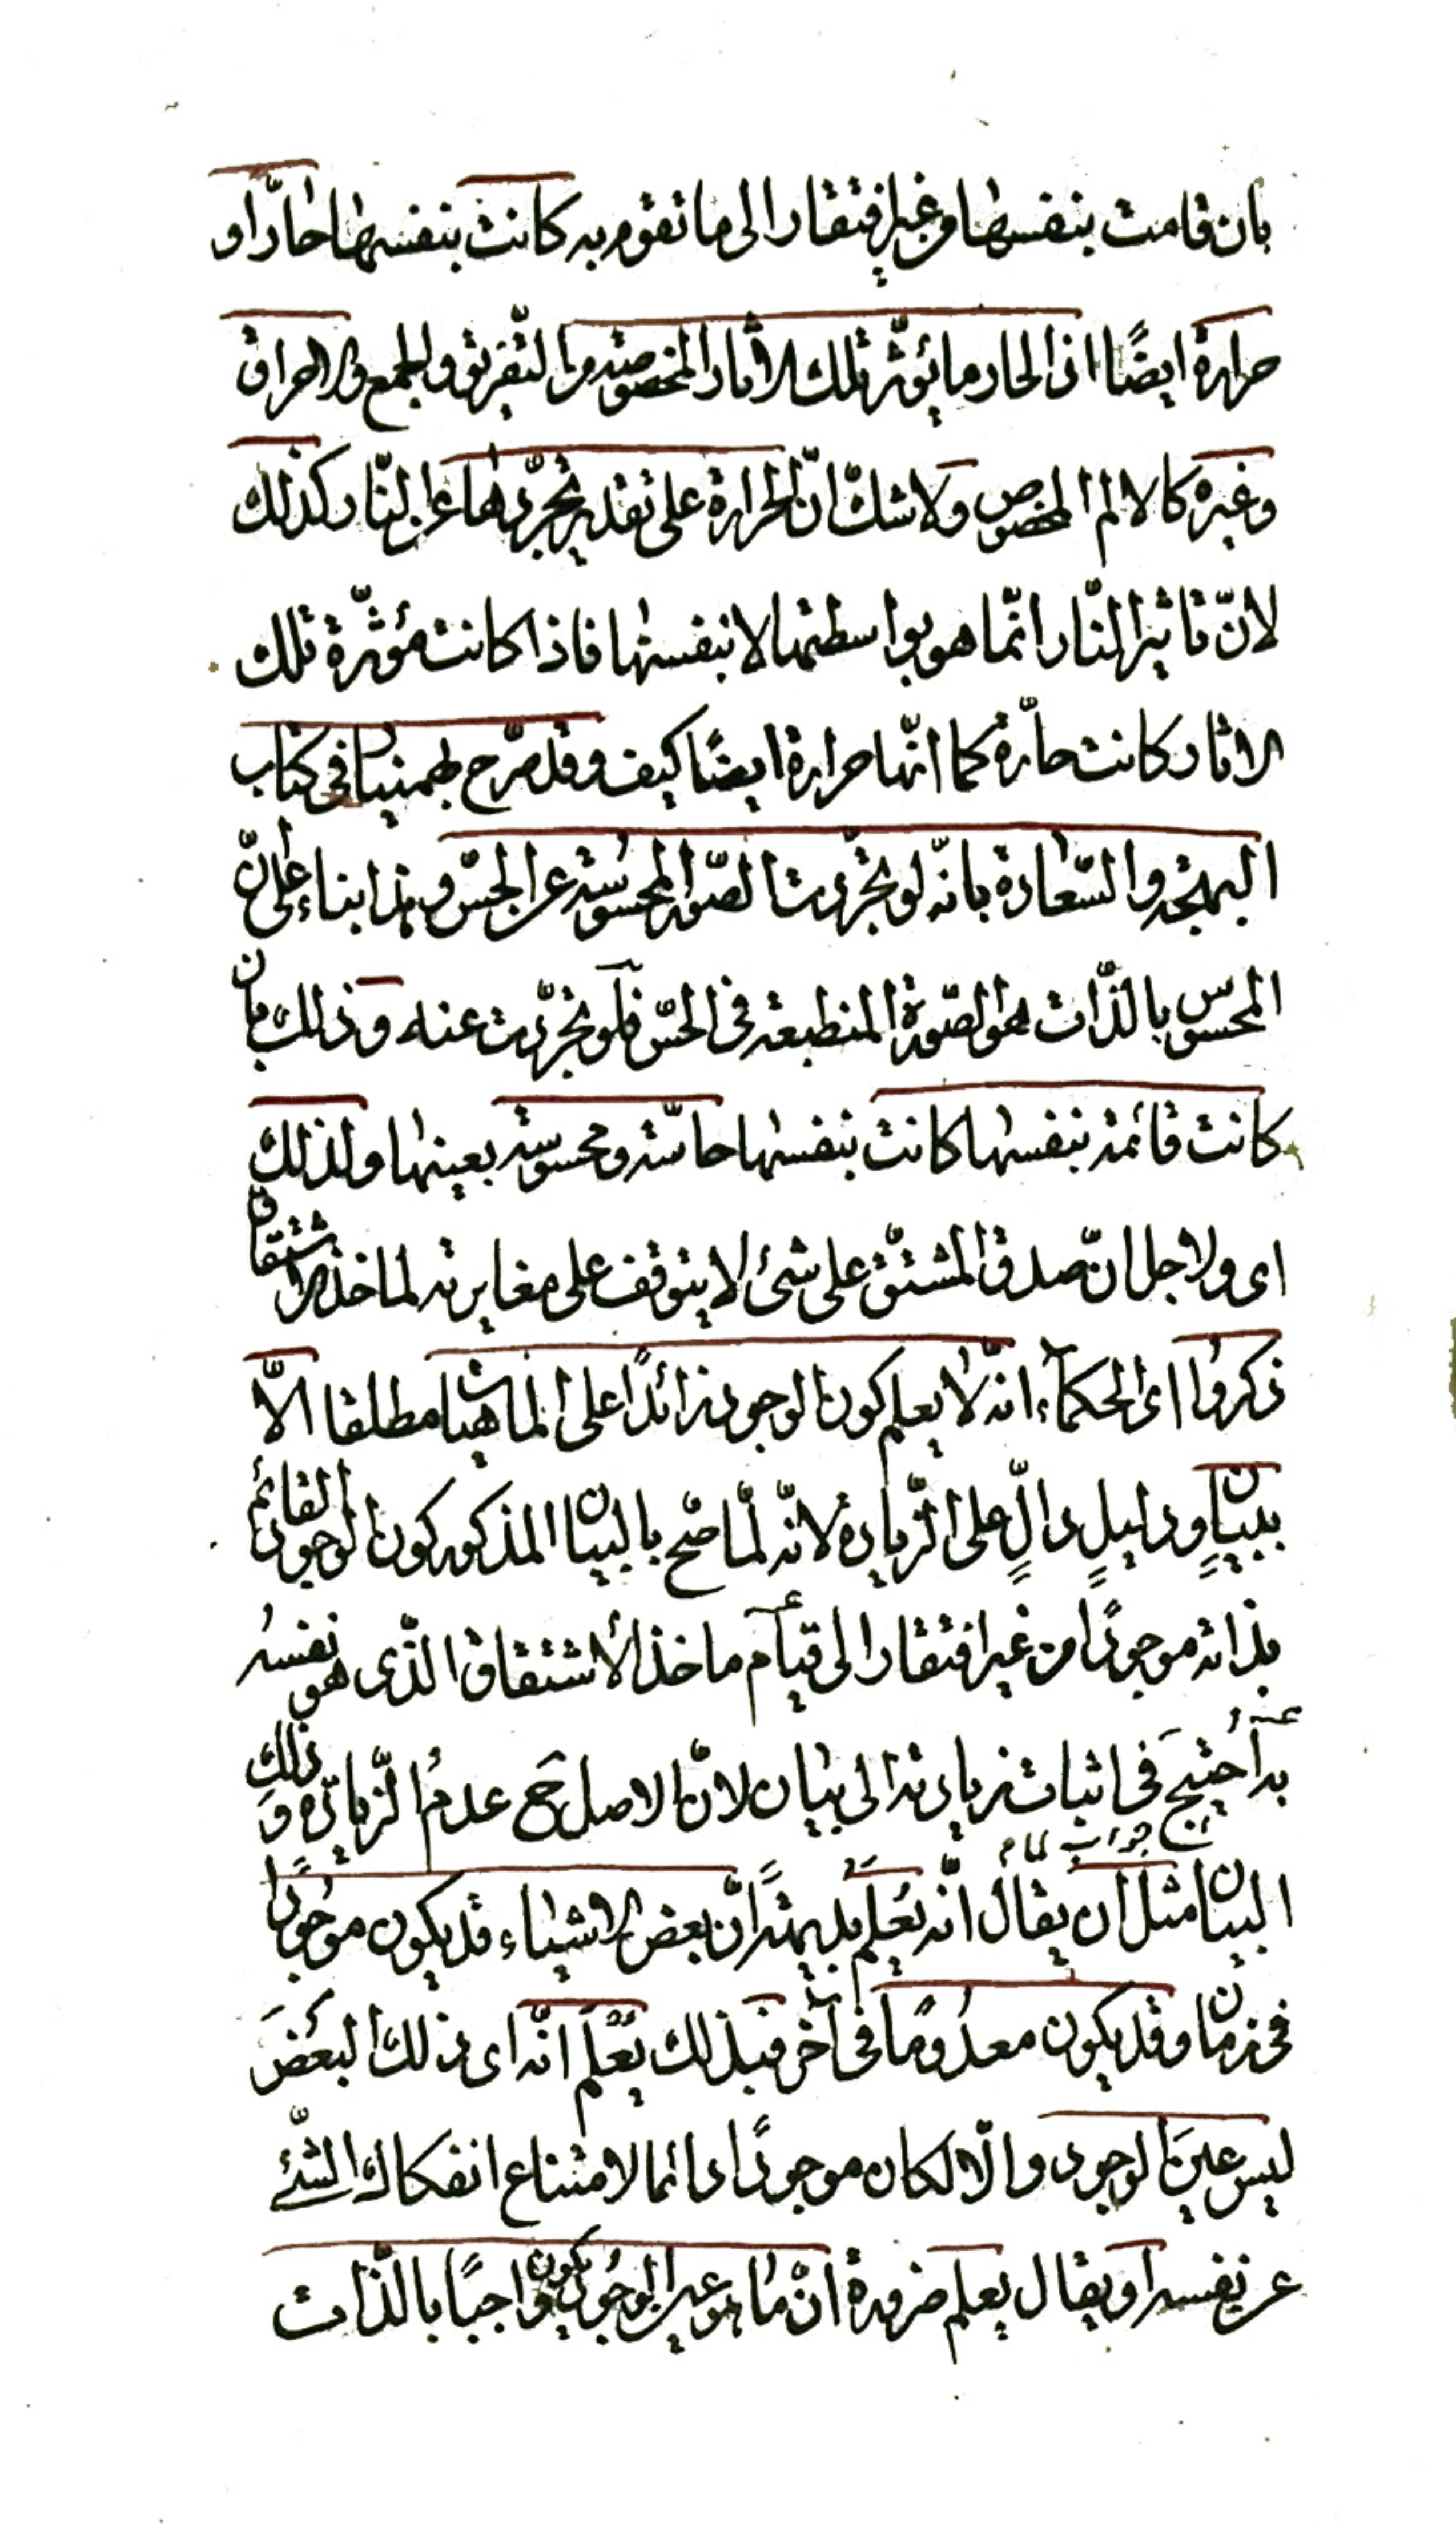 بان قامت بنفسها من غير افتقار الى ما تقوم به كانت بنفسها حارّا و
حرارة ايضًا اذ الحار ما يؤثّر تلك الاثار المخصوصة من التّفريق و الجمع و الاحراق
و غيره كالالم المخصوص و لا شك انّ الحرارة على تقدير تجرّدها عن النّار كذلك
لانّ تاثير النّار انّما هو بواسطتها لا بنفسها فاذا كانت مؤثّرة تلك
الاثار كانت حارّة كما انّها حرارة ايضًا كيف و قد صرّح بهمنيار فى كتاب
البهجة و السّعادة بانّه لو تجرّدت الصّور المحسوسة عن الحسّ و هذا بناء على انّ
المحسوس بالذّات هو الصّورة المنطبعة فى الحسّ فلو تجرّدت عنه و ذلك بان
كانت قائمة بنفسها كانت بنفسها حاسّة و محسوسة بعينها و لذلك
اى و لاجل انّ صدق المشتقّ على شئ لا يتوقف على مغايرته لماخذ الاشتقاق
ذكروا اى الحكماء انّه لا يعلم كون الوجود زائدًا على الماهيات مطلقا الّا
ببيان و دليلٍ دالٍّ على الزّيادة لانّه لمّا صحّ بالبيان المذكور كون الوجود القائم
بذاته موجودًا من غير افتقار الى قيام ماخذ الاشتقاق الّذى هو نفسه
به اُحتيج فى اثبات زيادته الى بيان لانّ الاصل ح عدمُ الزّيادة و ذلك
جواب لما
البيان مثل ان يقال انّه يُعلَم بديهةً انّ بعض الاشياء قد يكون موجودًا
فى زمان و قد يكون معدُومًا فى آخر فبذلك يُعْلَم انّه اى ذلك البعض
ليس عينَ الوجود و الّا لكان موجودًا دائما لامتناع انفكاك الشّئ
عن نفسه او يقال يعلم ضرورة انّ ما هو عين الوجود يكون واجبًا بالذّات